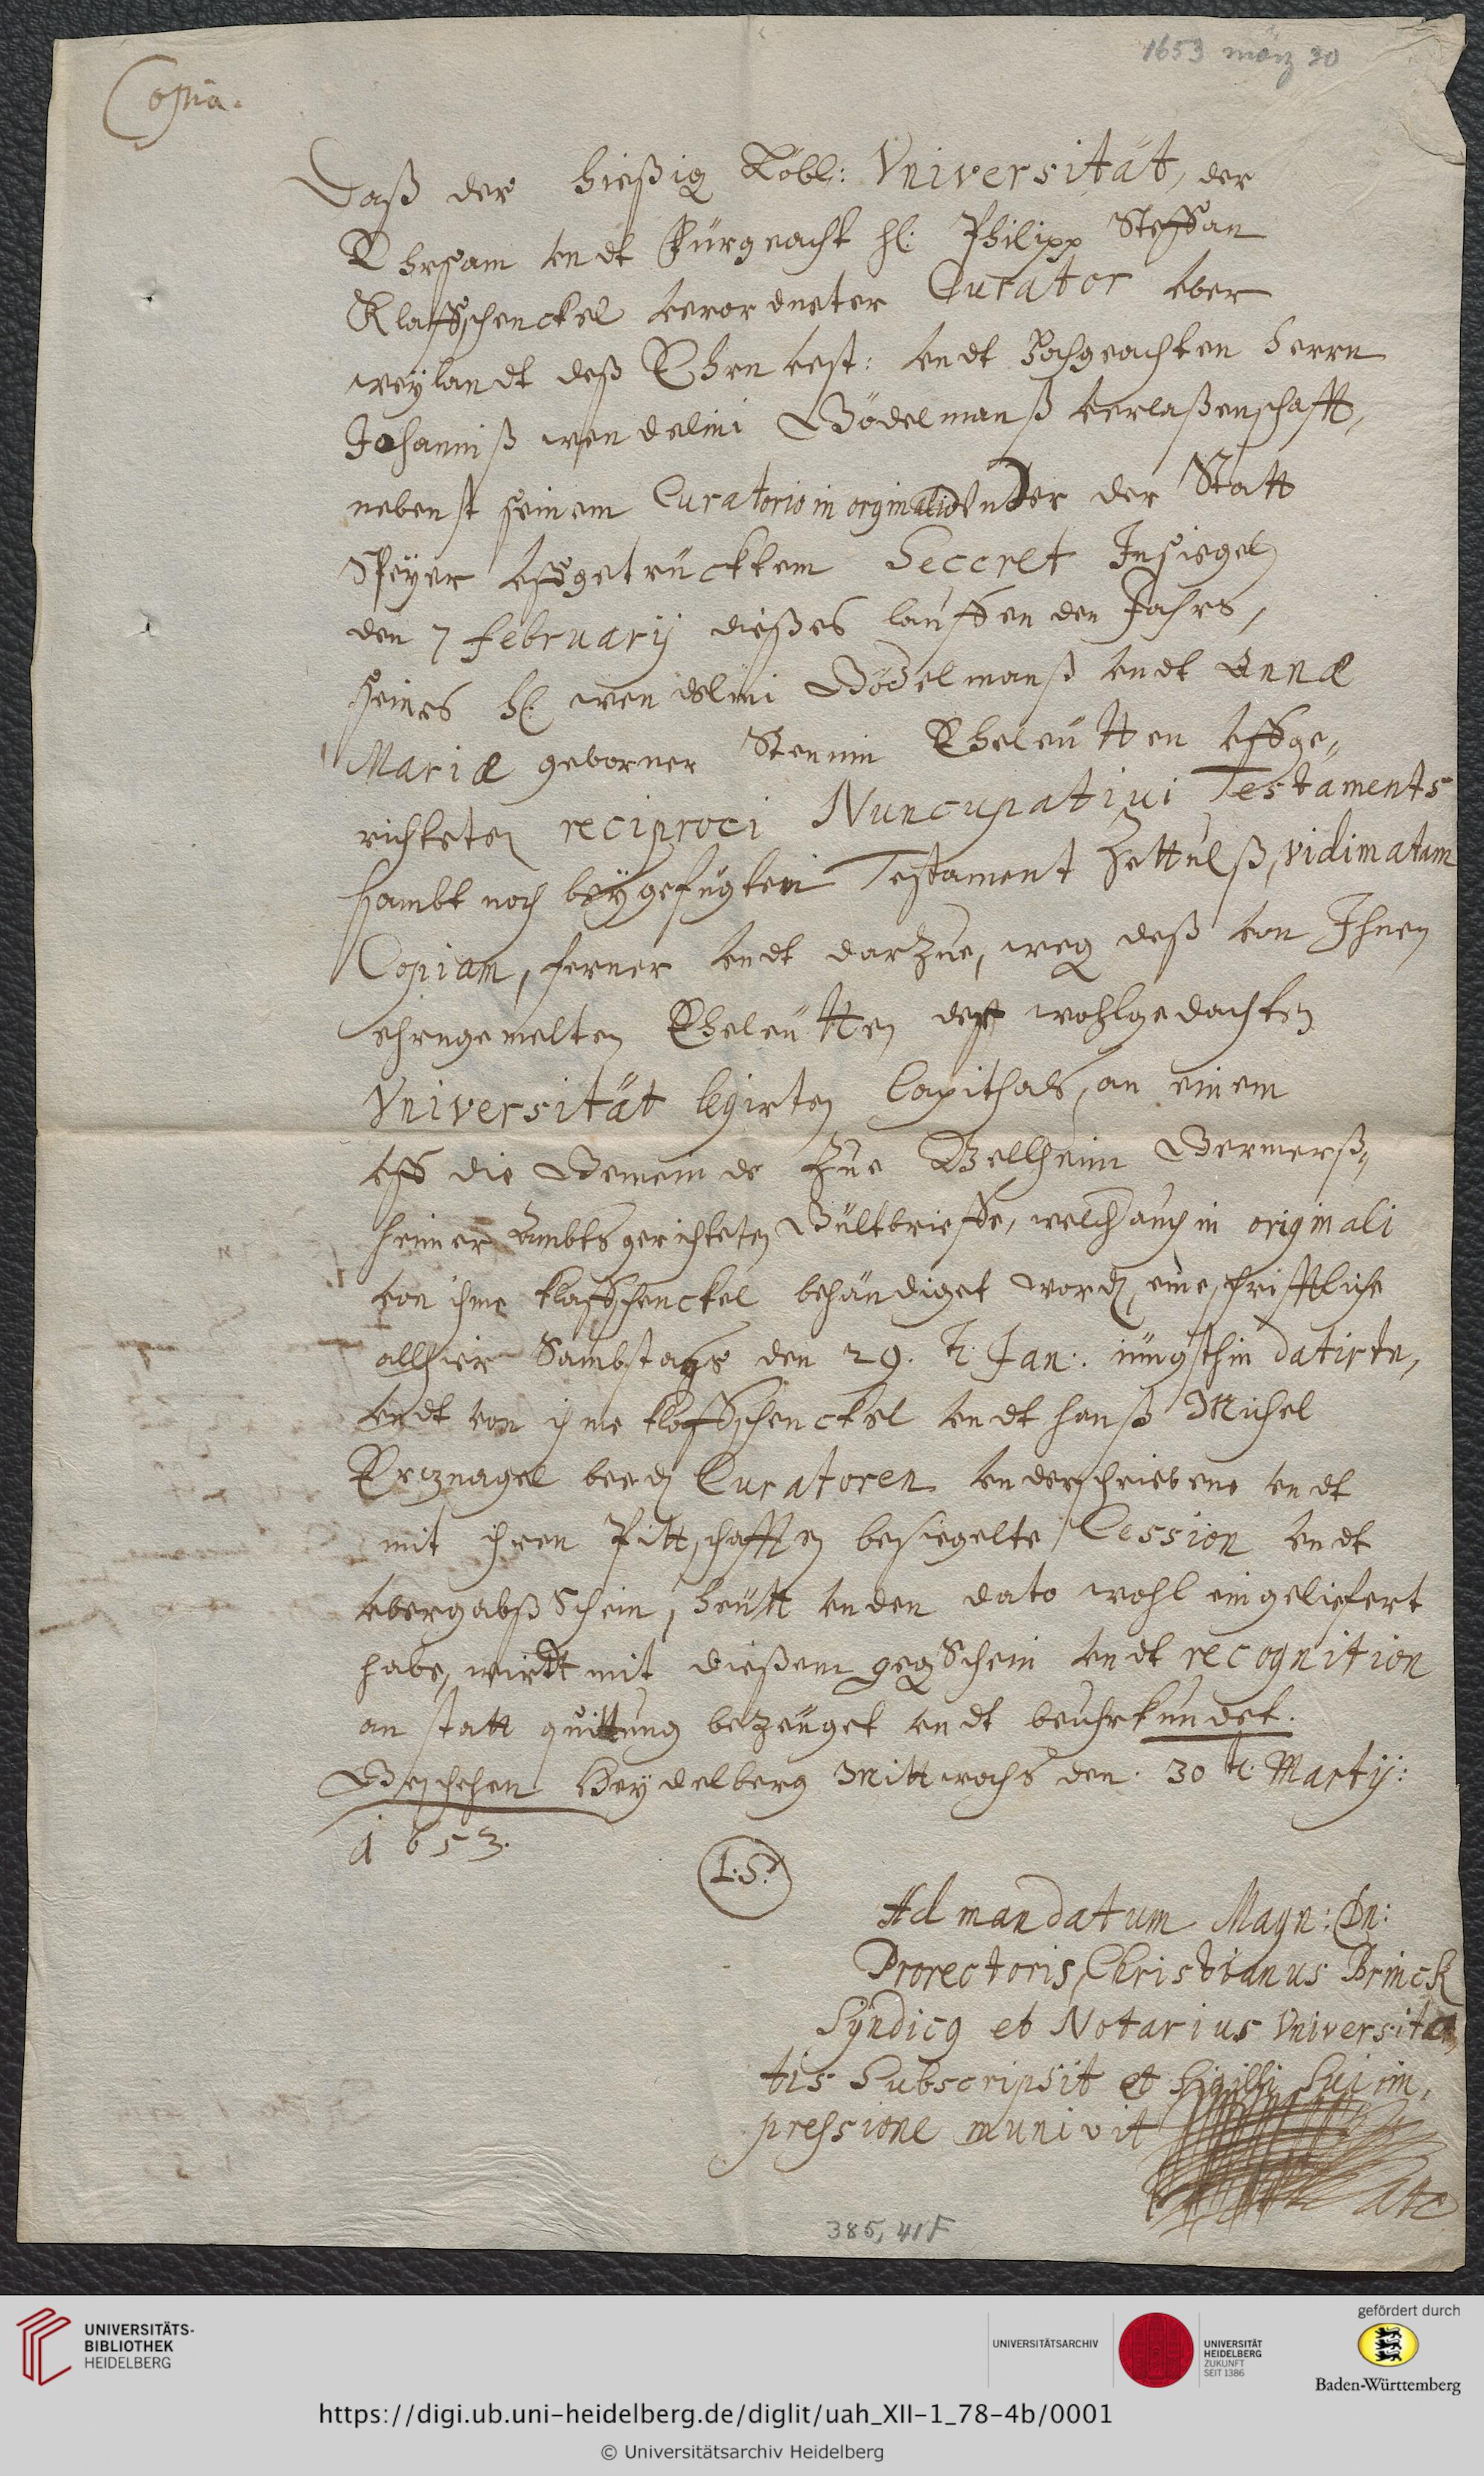 1653 märz 30
Copia.
Daß der hießig Löbl: Vniversität, der
Ehrsam vndt Fürgeacht H: Philipp Steffan
Klaffschenckel verordneter Curator vber
weylandt deß Ehrnvest: vndt Hochgeachten Herrn
Johanniß Wendelini Gödelmanß verlaßenschafft,
nebenst seinem Curatorio in orginali vnder der Statt
Speyer vffgetrücktem Seccret Insiegel
den 7 february dießes lauffenden Jahrs,
seines H: Wendelini Gödelmanß vndt Annæ
Mariæ geborner Eheleütten vffge„
richteten reciproci Nuncupativi Testaments
sambt noch beygefügten Testament Zettulß, vidimatam
Copiam, ferner vndt darzue, weg deß von Ihnen
ehrngemelten Eheleütten der wohlgedachten
Vniversität legirten Capithals, an einem
vff die Gemeinde zue Bellheim Germerß„
heimer Ambts gerichteten Gültbrieffe, welch auch in originali
von ihme Klaffschenckel behändiget word, eine schrifftliche
allhier Sambstags den 29. t. Jan: jüngsthin datirte,
vndt von ihme Klaffschenckel vndt Hanß Michel
beed Curatoren vnderschriebene vndt
mit ihren Pittschafften besiegelte Cession vndt
vbergabß Schein, heütt vnden dato wohl eingeliefert
habe, wirdt mit dießem geg Schein vndt recognition
an statt quittung bezeüget vndt beuhrkundet.
Geschehen Heydelberg Mittwochs den 30 t. Martij:
1653.
L.S.
Ad mandatum Magn: Dn:
Prorectoris Christianus Brinck
Syndicq et Notarius Vniversita„
tis Subscripsit et Sigilli Sui im„
pressione munivit
385, 41F
UNIVERSITÄTS-
BIBLIOTHEK
HEIDELBERG
UNIVERSITÄTSARCHIV
UNIVERSITÄT
HEIDELBERG
ZUKUNFT
SEIT 1386
gefördert durch
Baden-Württemberg
https://digi.ub.uni-heidelberg.de/diglit/uah_XII-1_78-4b/0001
© Universitätsarchiv Heidelberg